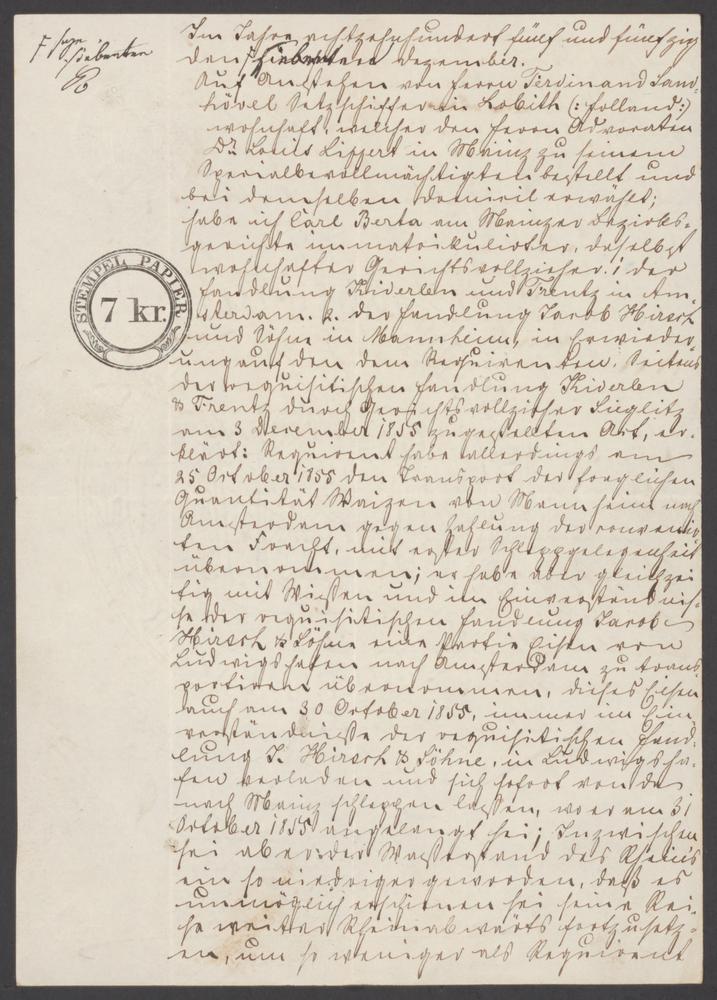 F sage
siebenten
Im Jahre achtzehnhundert fünf und fünfzig
den F siebenten dezember.
Auf Anstehen von Herrn Ferdinand Sand-
hövel Setzschiffer in Lobith (: Holland :)
wohnhaft, welcher den Herrn Advocaten
Dr. Louis Lippert in Mainz zu seinem
Spezialbevollmächtigten bestellt und
bei demselben Domicil erwählt;
habe ich Carl Berta am Mainzer Bezirks-
gerichte immatrikulirter, daselbst
wohnhafter Gerichtsvollzieher. 1 der
Handlung Kiderlen und Trentz in Am-
sterdam. 2. der Handlung Jacob Hirsch
und Söhne in Mannheim, in Erwieder-
ung auf den dem Requirenten, Seitens
der requisitischen Handlung Kiderlen
& Trentz durch Gerichtsvollzieher Lieglitz
am 3 December 1855 zugestellten Act, er-
klärt: Requirent habe allerdings am
25 October 1855 den Transport der fraglichen
Quantität Waizen von Mannheim nach
Amsterdam gegen Zahlung der convenir-
ten Fracht, mit erster Schleppgelegenheit
übernommen; er habe aber gleichzei
tig mit Wissen und im Einverständnis-
se der requisitischen Handlung Jacob
Hirsch & Söhne eine Partie Eisen von
Ludwigshafen nach Amsterdam zu trans
portiren übernommen, dieses Eisen
auch am 30 October 1855, immer im Ein
verständnisse der requisitischen Hand-
lung J. Hirsch & Söhne, in Ludwigsha-
fen verladen und sich sofort von da
nach Mainz schleppen lassen, wo er am 31
October 1855 angelangt sei; Inzwischen
sei aber der Wasserstand des Rheins
ein so niedriger geworden, daß es
unmöglich erschienen sei seine Rei-
se weiter Rheinabwärts fortzusetz-
en, um so weniger als Requirent
STEMPEL PAPIER
7 kr.